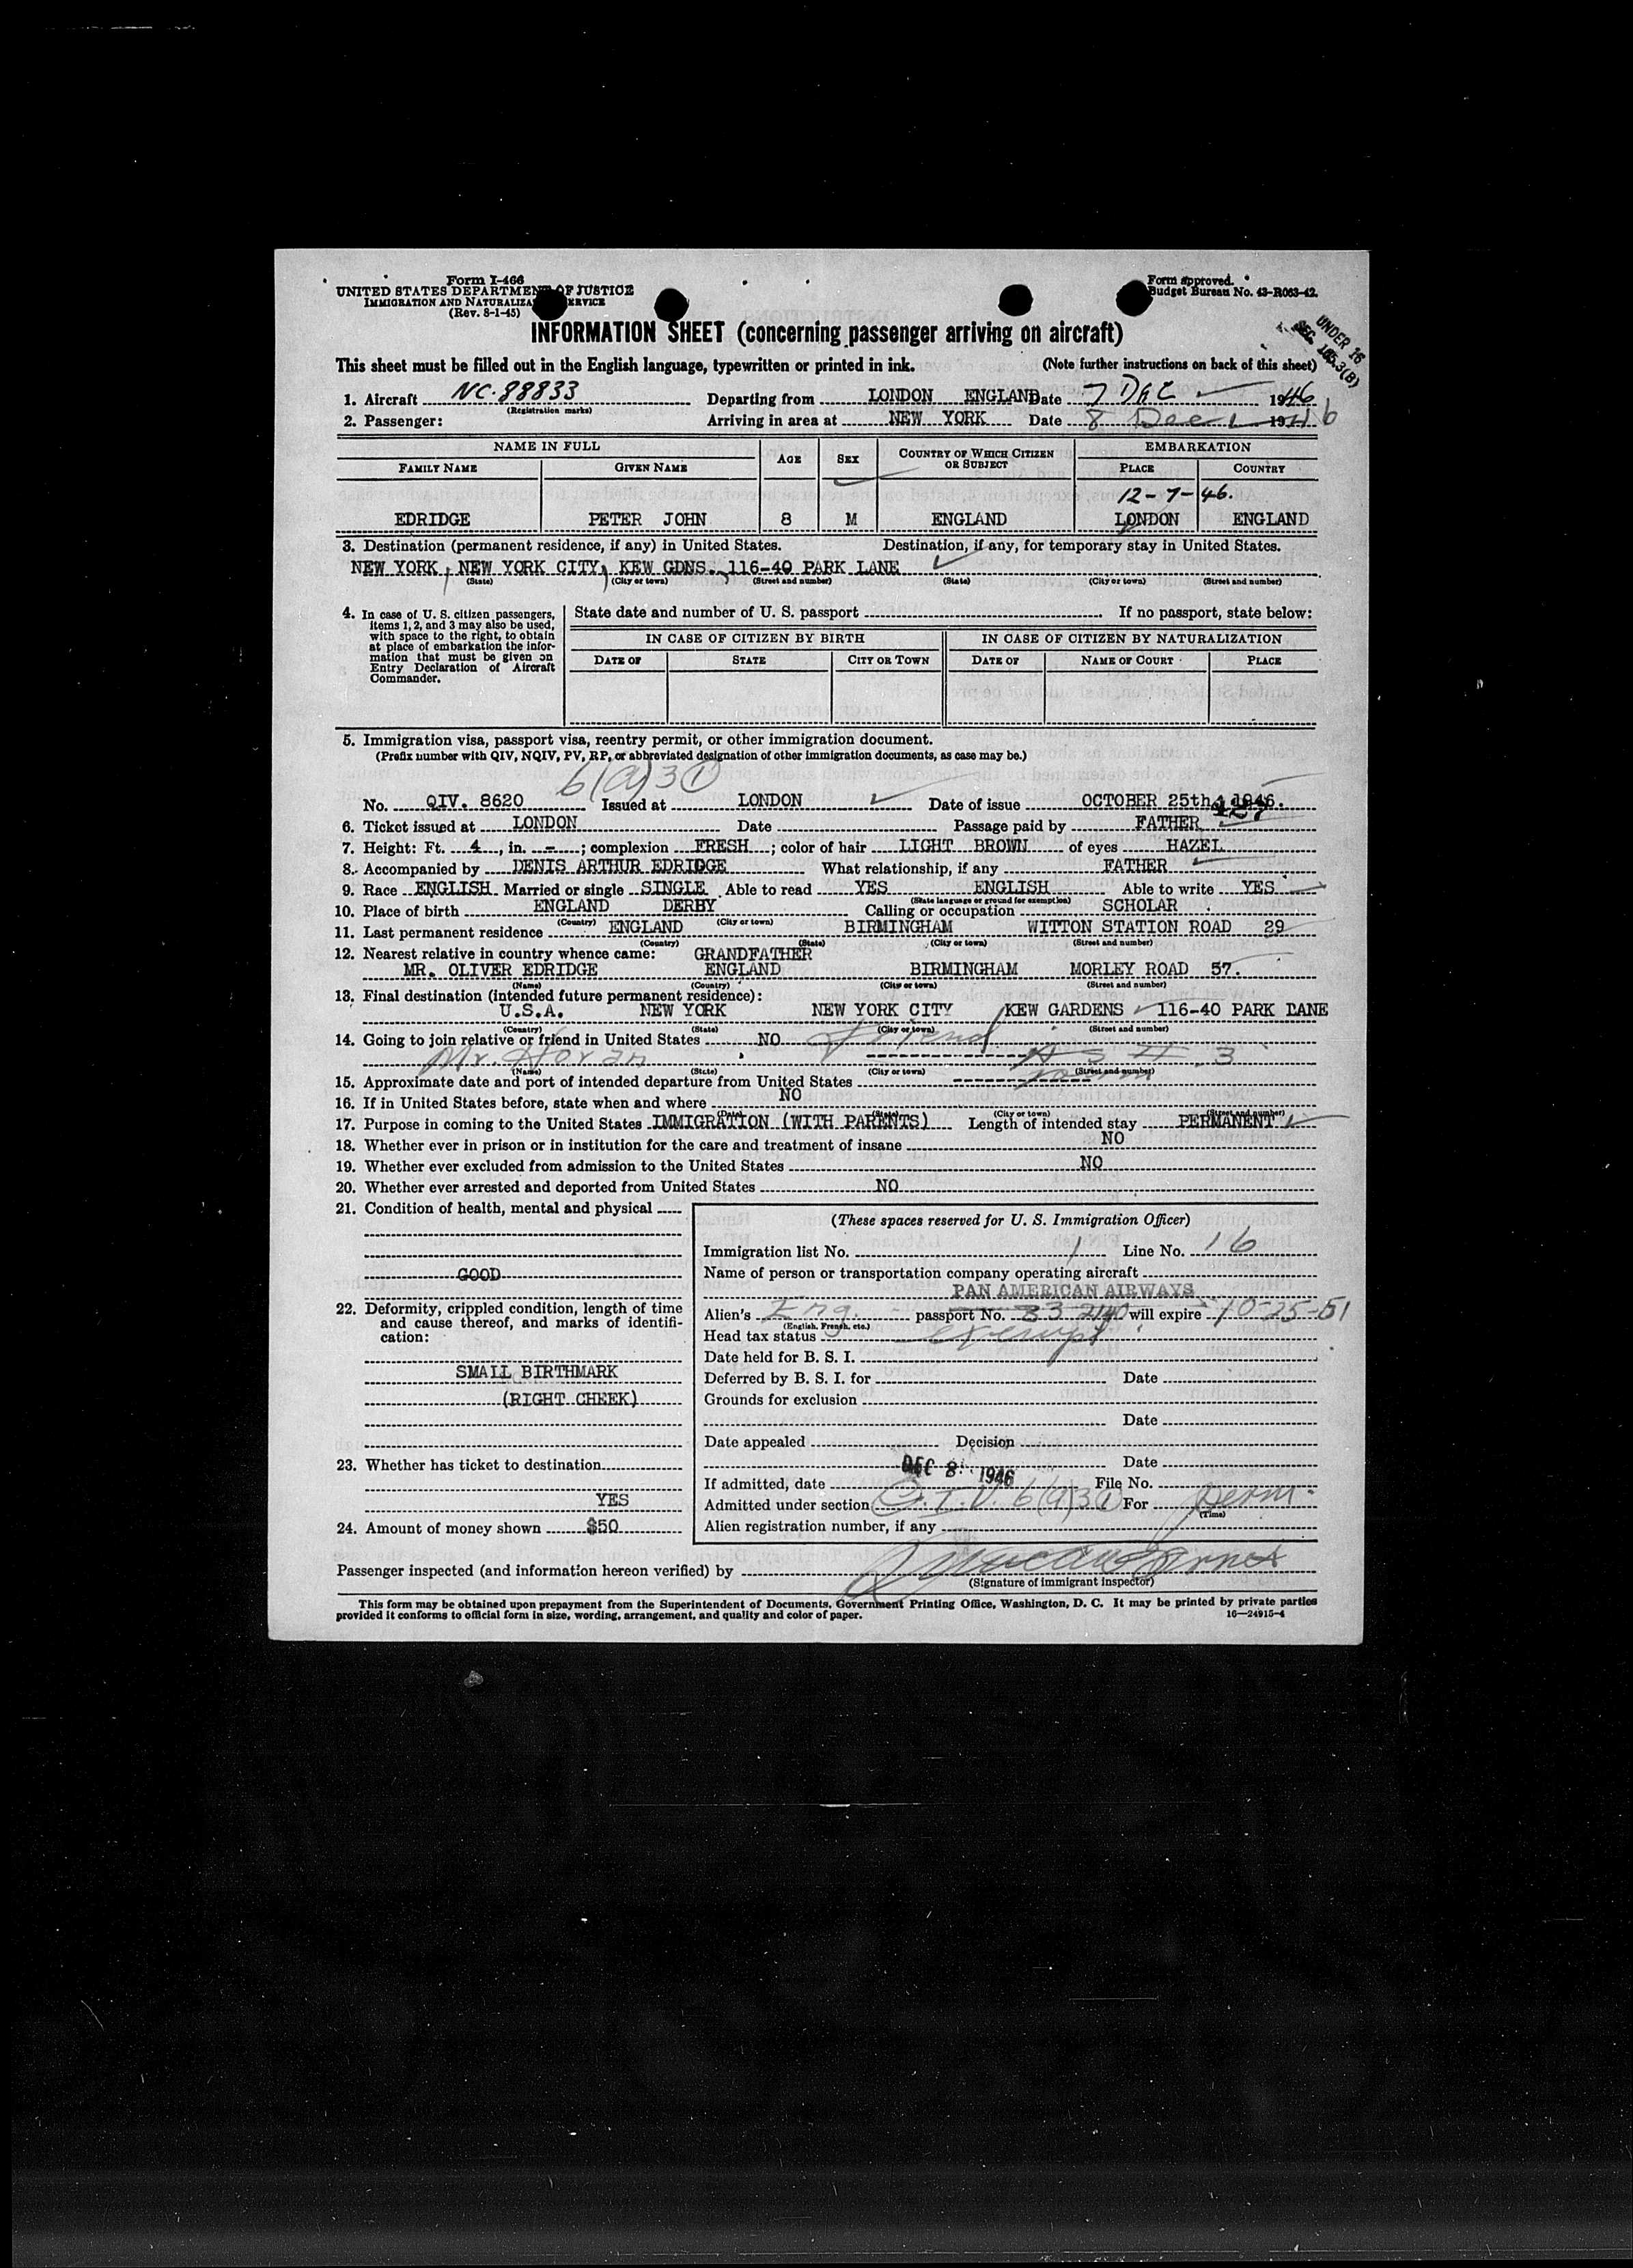 Form I-466
UNITED STATES DEPARTMENT OF JUSTICE
IMMIGRATION AND NATURALIZA ERVICE
(Rev. 8-1-45)
Form approved.
Budget Bureau No. 43-R063-42.
UNDER 16
SEC. 165.3(B)
INFORMATION SHEET (concerning passenger arriving on aircraft)
This sheet must be filled out in the English language, typewritten or printed in ink. (Note further instructions on back of this sheet)
1. Aircraft NC-88833 Departing from LONDON ENGLAND Date 7 DEC 1946
(Registration marks)
2. Passenger: Arriving in area at NEW YORK Date 8 Dec 1946
NAME IN FULL AGE SEX COUNTRY OF WHICH CITIZEN OR SUBJECT EMBARKATION
FAMILY NAME GIVEN NAME PLACE COUNTRY
12-7-46.
EDRIDGE PETER JOHN 8 M ENGLAND LONDON ENGLAND
3. Destination (permanent residence, if any) in United States. Destination, if any, for temporary stay in United States.
NEW YORK, NEW YORK CITY, KEW GDNS. 116-40 PARK LANE
(State) (City or town) (Street and number) (State) (City or town) (Street and number)
4. In case of U. S. citizen passengers, items 1, 2, and 3 may also be used, with space to the right, to obtain at place of embarkation the information that must be given on Entry Declaration of Aircraft Commander.
State date and number of U. S. passport If no passport, state below:
IN CASE OF CITIZEN BY BIRTH IN CASE OF CITIZEN BY NATURALIZATION
DATE OF STATE CITY OR TOWN DATE OF NAME OF COURT PLACE
5. Immigration visa, passport visa, reentry permit, or other immigration document.
(Prefix number with QIV, NQIV, PV, RP, or abbreviated designation of other immigration documents, as case may be.)
6(a)3(1)
No. QIV. 8620 Issued at LONDON Date of issue OCTOBER 25th, 1946.
427
6. Ticket issued at LONDON Date Passage paid by FATHER
7. Height: Ft. 4, in. -; complexion FRESH; color of hair LIGHT BROWN of eyes HAZEL
8. Accompanied by DENIS ARTHUR EDRIDGE What relationship, if any FATHER
9. Race ENGLISH Married or single SINGLE Able to read YES ENGLISH Able to write YES
(State language or ground for exemption)
10. Place of birth ENGLAND DERBY Calling or occupation SCHOLAR
(Country) (City or town)
11. Last permanent residence ENGLAND BIRMINGHAM WITTON STATION ROAD 29
(Country) (State) (City or town) (Street and number)
12. Nearest relative in country whence came: GRANDFATHER
MR. OLIVER EDRIDGE ENGLAND BIRMINGHAM MORLEY ROAD 57.
(Name) (Country) (City or town) (Street and number)
13. Final destination (intended future permanent residence):
U.S.A. NEW YORK NEW YORK CITY KEW GARDENS 116-40 PARK LANE
(Country) (State) (City or town) (Street and number)
14. Going to join relative or friend in United States NO friend
Mr. Horan AS # 3
(Name) (State) (City or town) (Street and number)
15. Approximate date and port of intended departure from United States
16. If in United States before, state when and where NO
(Date) (State) (City or town) (Street and number)
17. Purpose in coming to the United States IMMIGRATION (WITH PARENTS) Length of intended stay PERMANENT
18. Whether ever in prison or in institution for the care and treatment of insane NO
19. Whether ever excluded from admission to the United States NO
20. Whether ever arrested and deported from United States NO
21. Condition of health, mental and physical
GOOD
22. Deformity, crippled condition, length of time and cause thereof, and marks of identification:
SMALL BIRTHMARK
(RIGHT CHEEK)
23. Whether has ticket to destination
YES
24. Amount of money shown $50
(These spaces reserved for U. S. Immigration Officer)
Immigration list No. 1 Line No. 16
Name of person or transportation company operating aircraft
PAN AMERICAN AIRWAYS
Alien's Eng. passport No. 33 2140 will expire 10-25-51
(English, French, etc.)
Head tax status exempt
Date held for B. S. I.
Deferred by B. S. I. for Date
Grounds for exclusion
Date
Date appealed Decision
Date
DEC 8 1946
If admitted, date File No.
Admitted under section Q.I.V. 6(a)3(1) For Perm.
(Time)
Alien registration number, if any
Passenger inspected (and information hereon verified) by
(Signature of immigrant inspector)
This form may be obtained upon prepayment from the Superintendent of Documents, Government Printing Office, Washington, D. C. It may be printed by private parties
provided it conforms to official form in size, wording, arrangement, and quality and color of paper. 16—24915-4